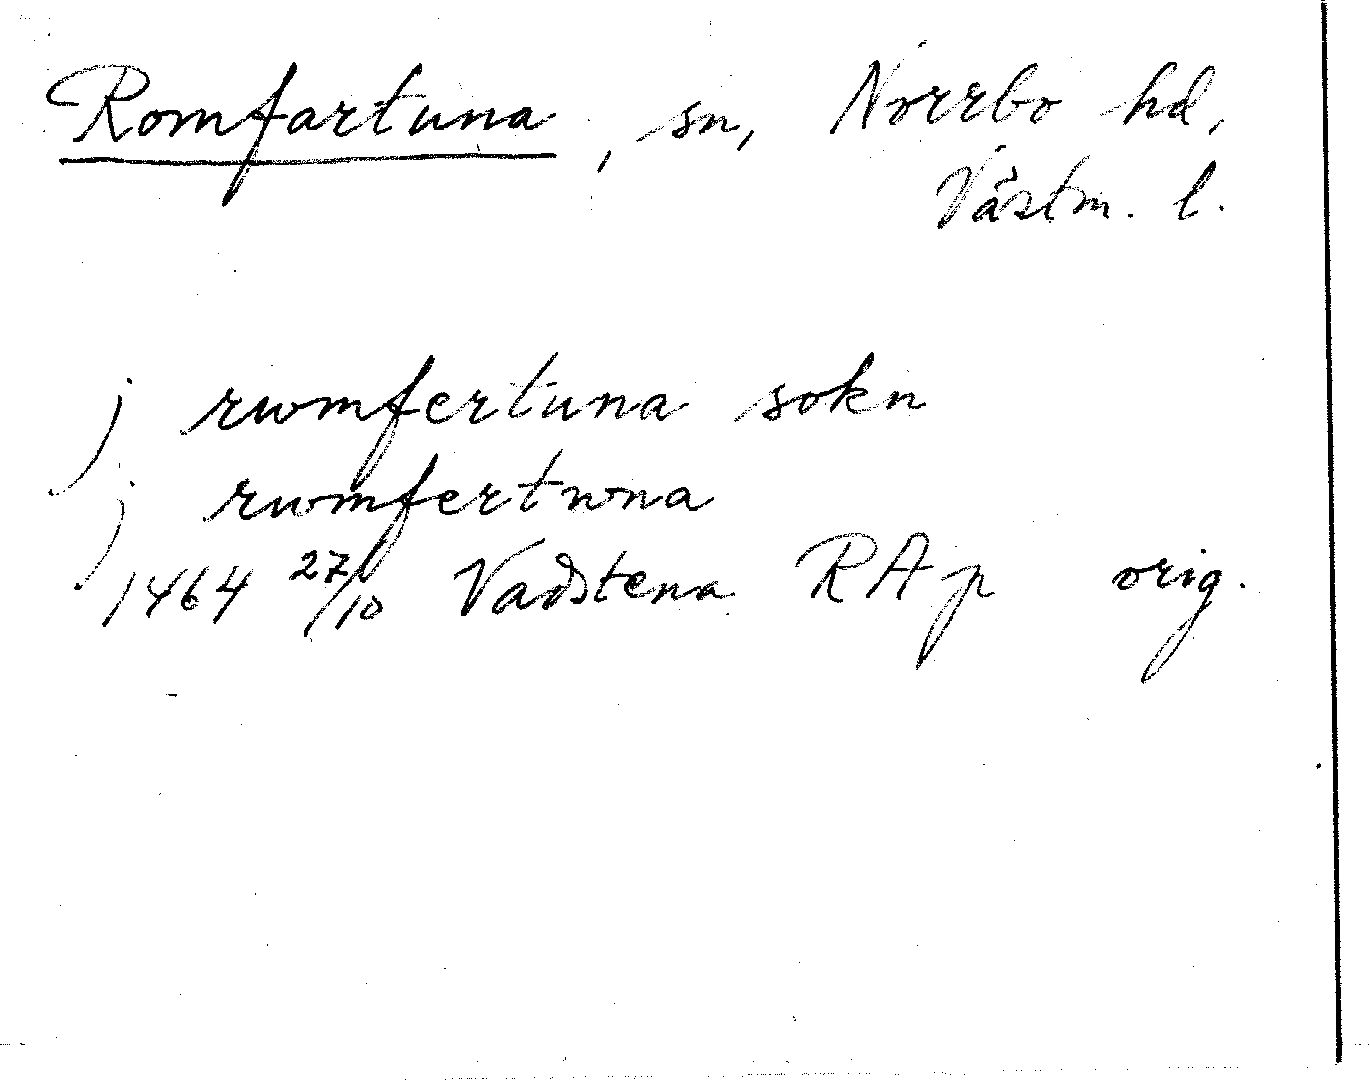 Romfartuna, sn, Norrbo hd,
Västm. l.
j rwmfertuna sokn
j rwmfertwna
1464 27/10 Vadstena RAp orig.